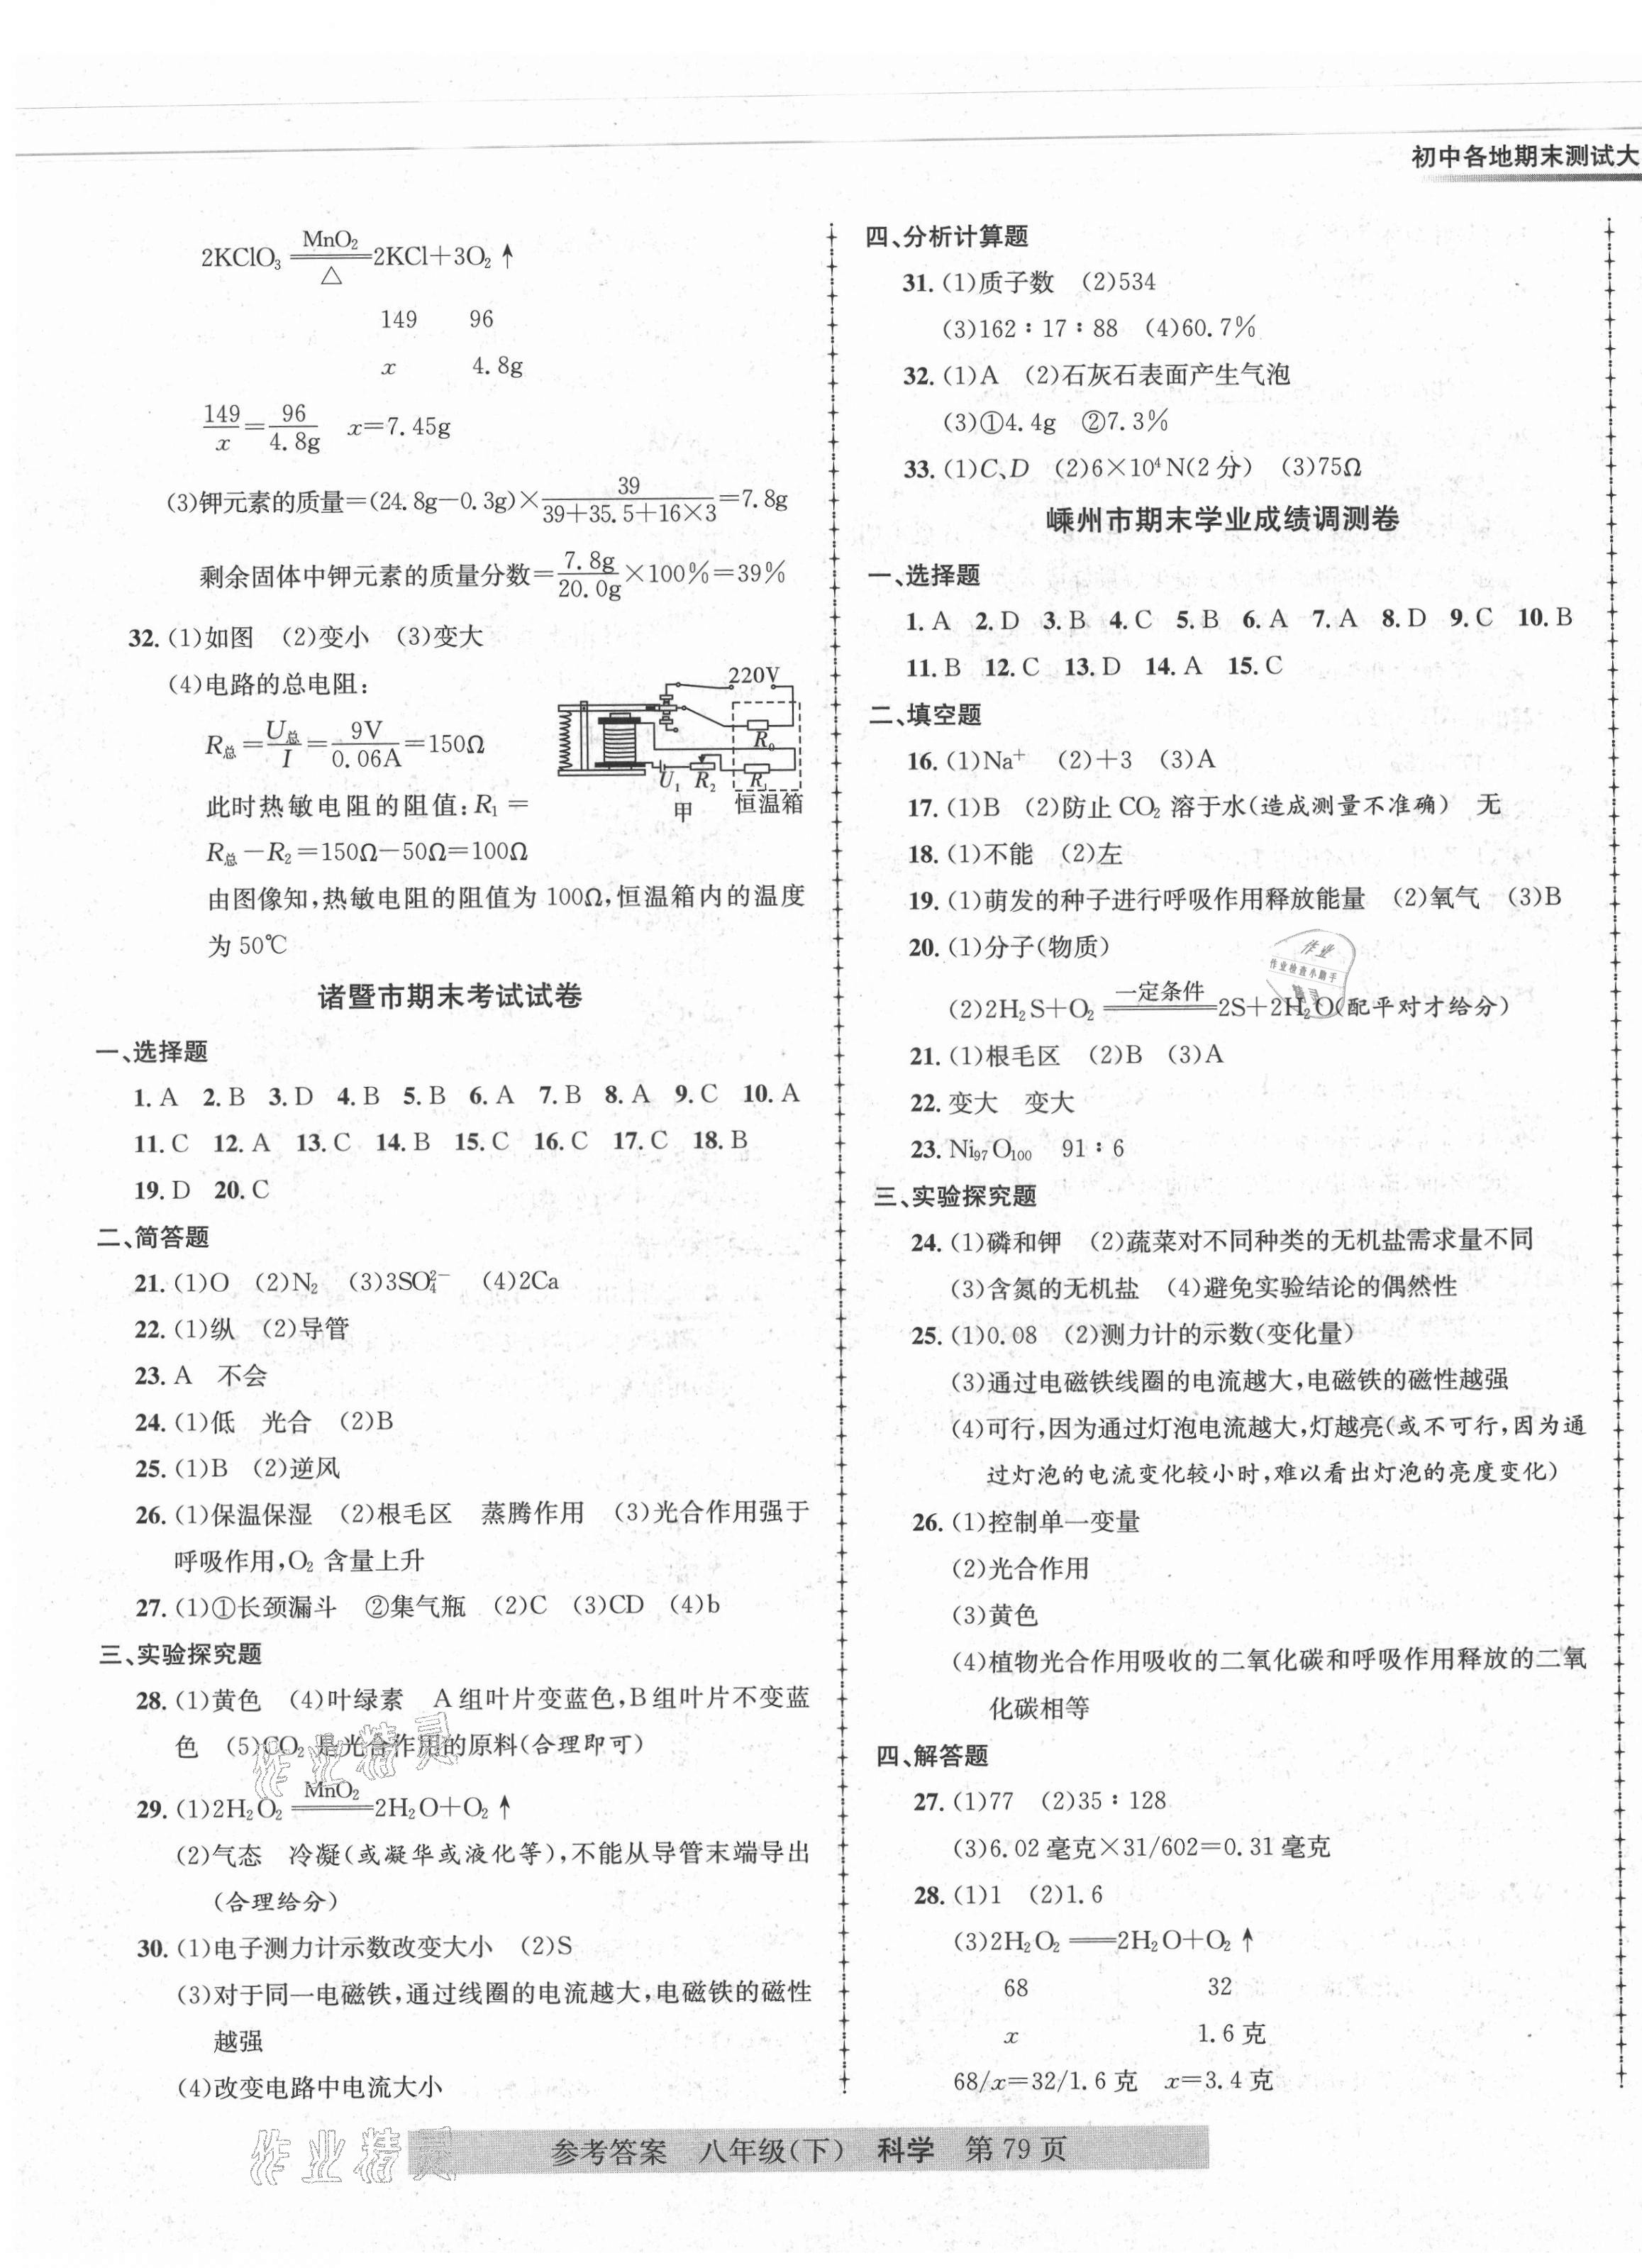 初中各地期末测试大
2KClO₃ =MnO₂/△= 2KCl+3O₂↑
149 96
x 4.8g
149/x=96/4.8g x=7.45g
(3)钾元素的质量=(24.8g-0.3g)×39/(39+35.5+16×3)=7.8g
剩余固体中钾元素的质量分数=7.8g/20.0g×100%=39%
32.(1)如图 (2)变小 (3)变大
(4)电路的总电阻:
R总=U总/I=9V/0.06A=150Ω
此时热敏电阻的阻值:R₁=
R总-R₂=150Ω-50Ω=100Ω
220V
R₀
U₁ R₂ R₁
甲 恒温箱
由图像知,热敏电阻的阻值为100Ω,恒温箱内的温度
为50℃
诸暨市期末考试试卷
一、选择题
1.A 2.B 3.D 4.B 5.B 6.A 7.B 8.A 9.C 10.A
11.C 12.A 13.C 14.B 15.C 16.C 17.C 18.B
19.D 20.C
二、简答题
21.(1)O (2)N₂ (3)3SO₄²⁻ (4)2Ca
22.(1)纵 (2)导管
23.A 不会
24.(1)低 光合 (2)B
25.(1)B (2)逆风
26.(1)保温保湿 (2)根毛区 蒸腾作用 (3)光合作用强于
呼吸作用,O₂含量上升
27.(1)①长颈漏斗 ②集气瓶 (2)C (3)CD (4)b
三、实验探究题
28.(1)黄色 (4)叶绿素 A组叶片变蓝色,B组叶片不变蓝
色 (5)CO₂是光合作用的原料(合理即可)
29.(1)2H₂O₂ =MnO₂= 2H₂O+O₂↑
(2)气态 冷凝(或凝华或液化等),不能从导管末端导出
(合理给分)
30.(1)电子测力计示数改变大小 (2)S
(3)对于同一电磁铁,通过线圈的电流越大,电磁铁的磁性
越强
(4)改变电路中电流大小
四、分析计算题
31.(1)质子数 (2)534
(3)162∶17∶88 (4)60.7%
32.(1)A (2)石灰石表面产生气泡
(3)①4.4g ②7.3%
33.(1)C、D (2)6×10⁴N(2分) (3)75Ω
嵊州市期末学业成绩调测卷
一、选择题
1.A 2.D 3.B 4.C 5.B 6.A 7.A 8.D 9.C 10.B
11.B 12.C 13.D 14.A 15.C
二、填空题
16.(1)Na⁺ (2)+3 (3)A
17.(1)B (2)防止CO₂溶于水(造成测量不准确) 无
18.(1)不能 (2)左
19.(1)萌发的种子进行呼吸作用释放能量 (2)氧气 (3)B
20.(1)分子(物质)
(2)2H₂S+O₂ =一定条件= 2S+2H₂O(配平对才给分)
作业
作业检查小助手
21.(1)根毛区 (2)B (3)A
22.变大 变大
23.Ni₉₇O₁₀₀ 91∶6
三、实验探究题
24.(1)磷和钾 (2)蔬菜对不同种类的无机盐需求量不同
(3)含氮的无机盐 (4)避免实验结论的偶然性
25.(1)0.08 (2)测力计的示数(变化量)
(3)通过电磁铁线圈的电流越大,电磁铁的磁性越强
(4)可行,因为通过灯泡电流越大,灯越亮(或不可行,因为通
过灯泡的电流变化较小时,难以看出灯泡的亮度变化)
26.(1)控制单一变量
(2)光合作用
(3)黄色
(4)植物光合作用吸收的二氧化碳和呼吸作用释放的二氧
化碳相等
四、解答题
27.(1)77 (2)35∶128
(3)6.02毫克×31/602=0.31毫克
28.(1)1 (2)1.6
(3)2H₂O₂ ══ 2H₂O+O₂↑
68 32
x 1.6克
68/x=32/1.6克 x=3.4克
作业精灵
作业精灵
参考答案 八年级(下) 科学 第79页